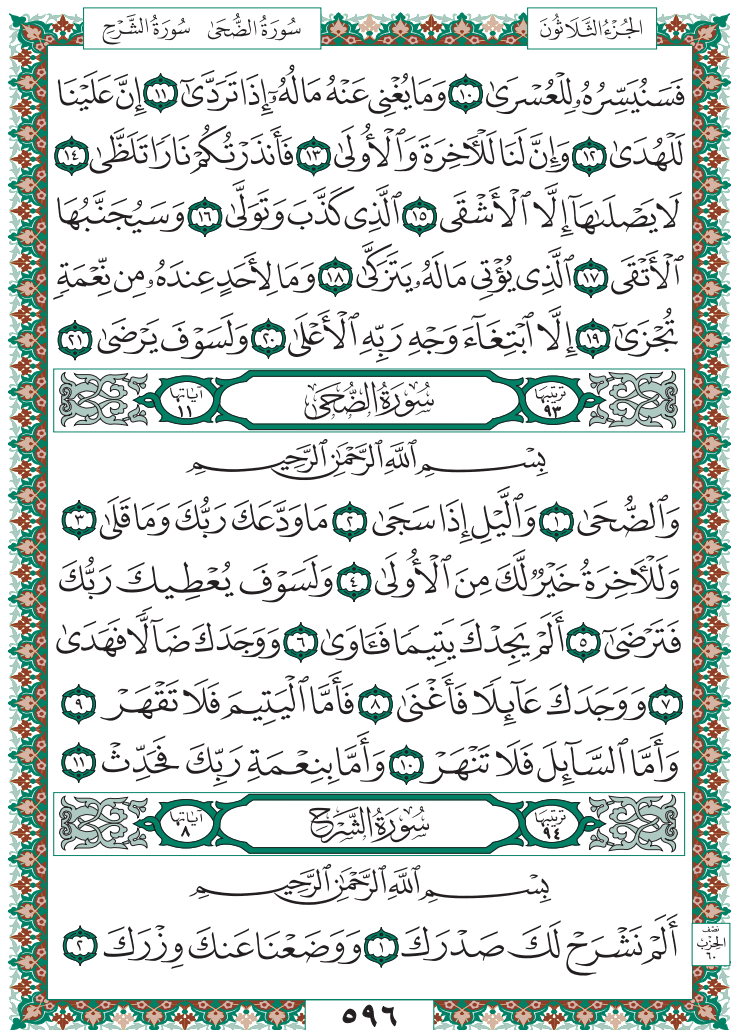 الجُزْءُ الثَّلَاثُونَ
سُورَةُ الضُّحَىٰ سُورَةُ الشَّرْحِ
فَسَنُيَسِّرُهُۥ لِلْعُسْرَىٰ ١٠ وَمَا يُغْنِى عَنْهُ مَالُهُۥٓ إِذَا تَرَدَّىٰٓ ١١ إِنَّ عَلَيْنَا
لَلْهُدَىٰ ١٢ وَإِنَّ لَنَا لَلْأٓخِرَةَ وَٱلْأُولَىٰ ١٣ فَأَنذَرْتُكُمْ نَارًا تَلَظَّىٰ ١٤
لَا يَصْلَىٰهَآ إِلَّا ٱلْأَشْقَى ١٥ ٱلَّذِى كَذَّبَ وَتَوَلَّىٰ ١٦ وَسَيُجَنَّبُهَا
ٱلْأَتْقَى ١٧ ٱلَّذِى يُؤْتِى مَالَهُۥ يَتَزَكَّىٰ ١٨ وَمَا لِأَحَدٍ عِندَهُۥ مِن نِّعْمَةٍ
تُجْزَىٰٓ ١٩ إِلَّا ٱبْتِغَآءَ وَجْهِ رَبِّهِ ٱلْأَعْلَىٰ ٢٠ وَلَسَوْفَ يَرْضَىٰ ٢١
ترتيبها ٩٣ سُورَةُ الضُّحَىٰ آياتها ١١
بِسْمِ ٱللَّهِ ٱلرَّحْمَٰنِ ٱلرَّحِيمِ
وَٱلضُّحَىٰ ١ وَٱلَّيْلِ إِذَا سَجَىٰ ٢ مَا وَدَّعَكَ رَبُّكَ وَمَا قَلَىٰ ٣
وَلَلْأٓخِرَةُ خَيْرٌ لَّكَ مِنَ ٱلْأُولَىٰ ٤ وَلَسَوْفَ يُعْطِيكَ رَبُّكَ
فَتَرْضَىٰٓ ٥ أَلَمْ يَجِدْكَ يَتِيمًا فَـَٔاوَىٰ ٦ وَوَجَدَكَ ضَآلًّا فَهَدَىٰ
٧ وَوَجَدَكَ عَآئِلًا فَأَغْنَىٰ ٨ فَأَمَّا ٱلْيَتِيمَ فَلَا تَقْهَرْ ٩
وَأَمَّا ٱلسَّآئِلَ فَلَا تَنْهَرْ ١٠ وَأَمَّا بِنِعْمَةِ رَبِّكَ فَحَدِّثْ ١١
ترتيبها ٩٤ سُورَةُ الشَّرْحِ آياتها ٨
بِسْمِ ٱللَّهِ ٱلرَّحْمَٰنِ ٱلرَّحِيمِ
أَلَمْ نَشْرَحْ لَكَ صَدْرَكَ ١ وَوَضَعْنَا عَنكَ وِزْرَكَ ٢
نصف
الحزب
٦٠
٥٩٦